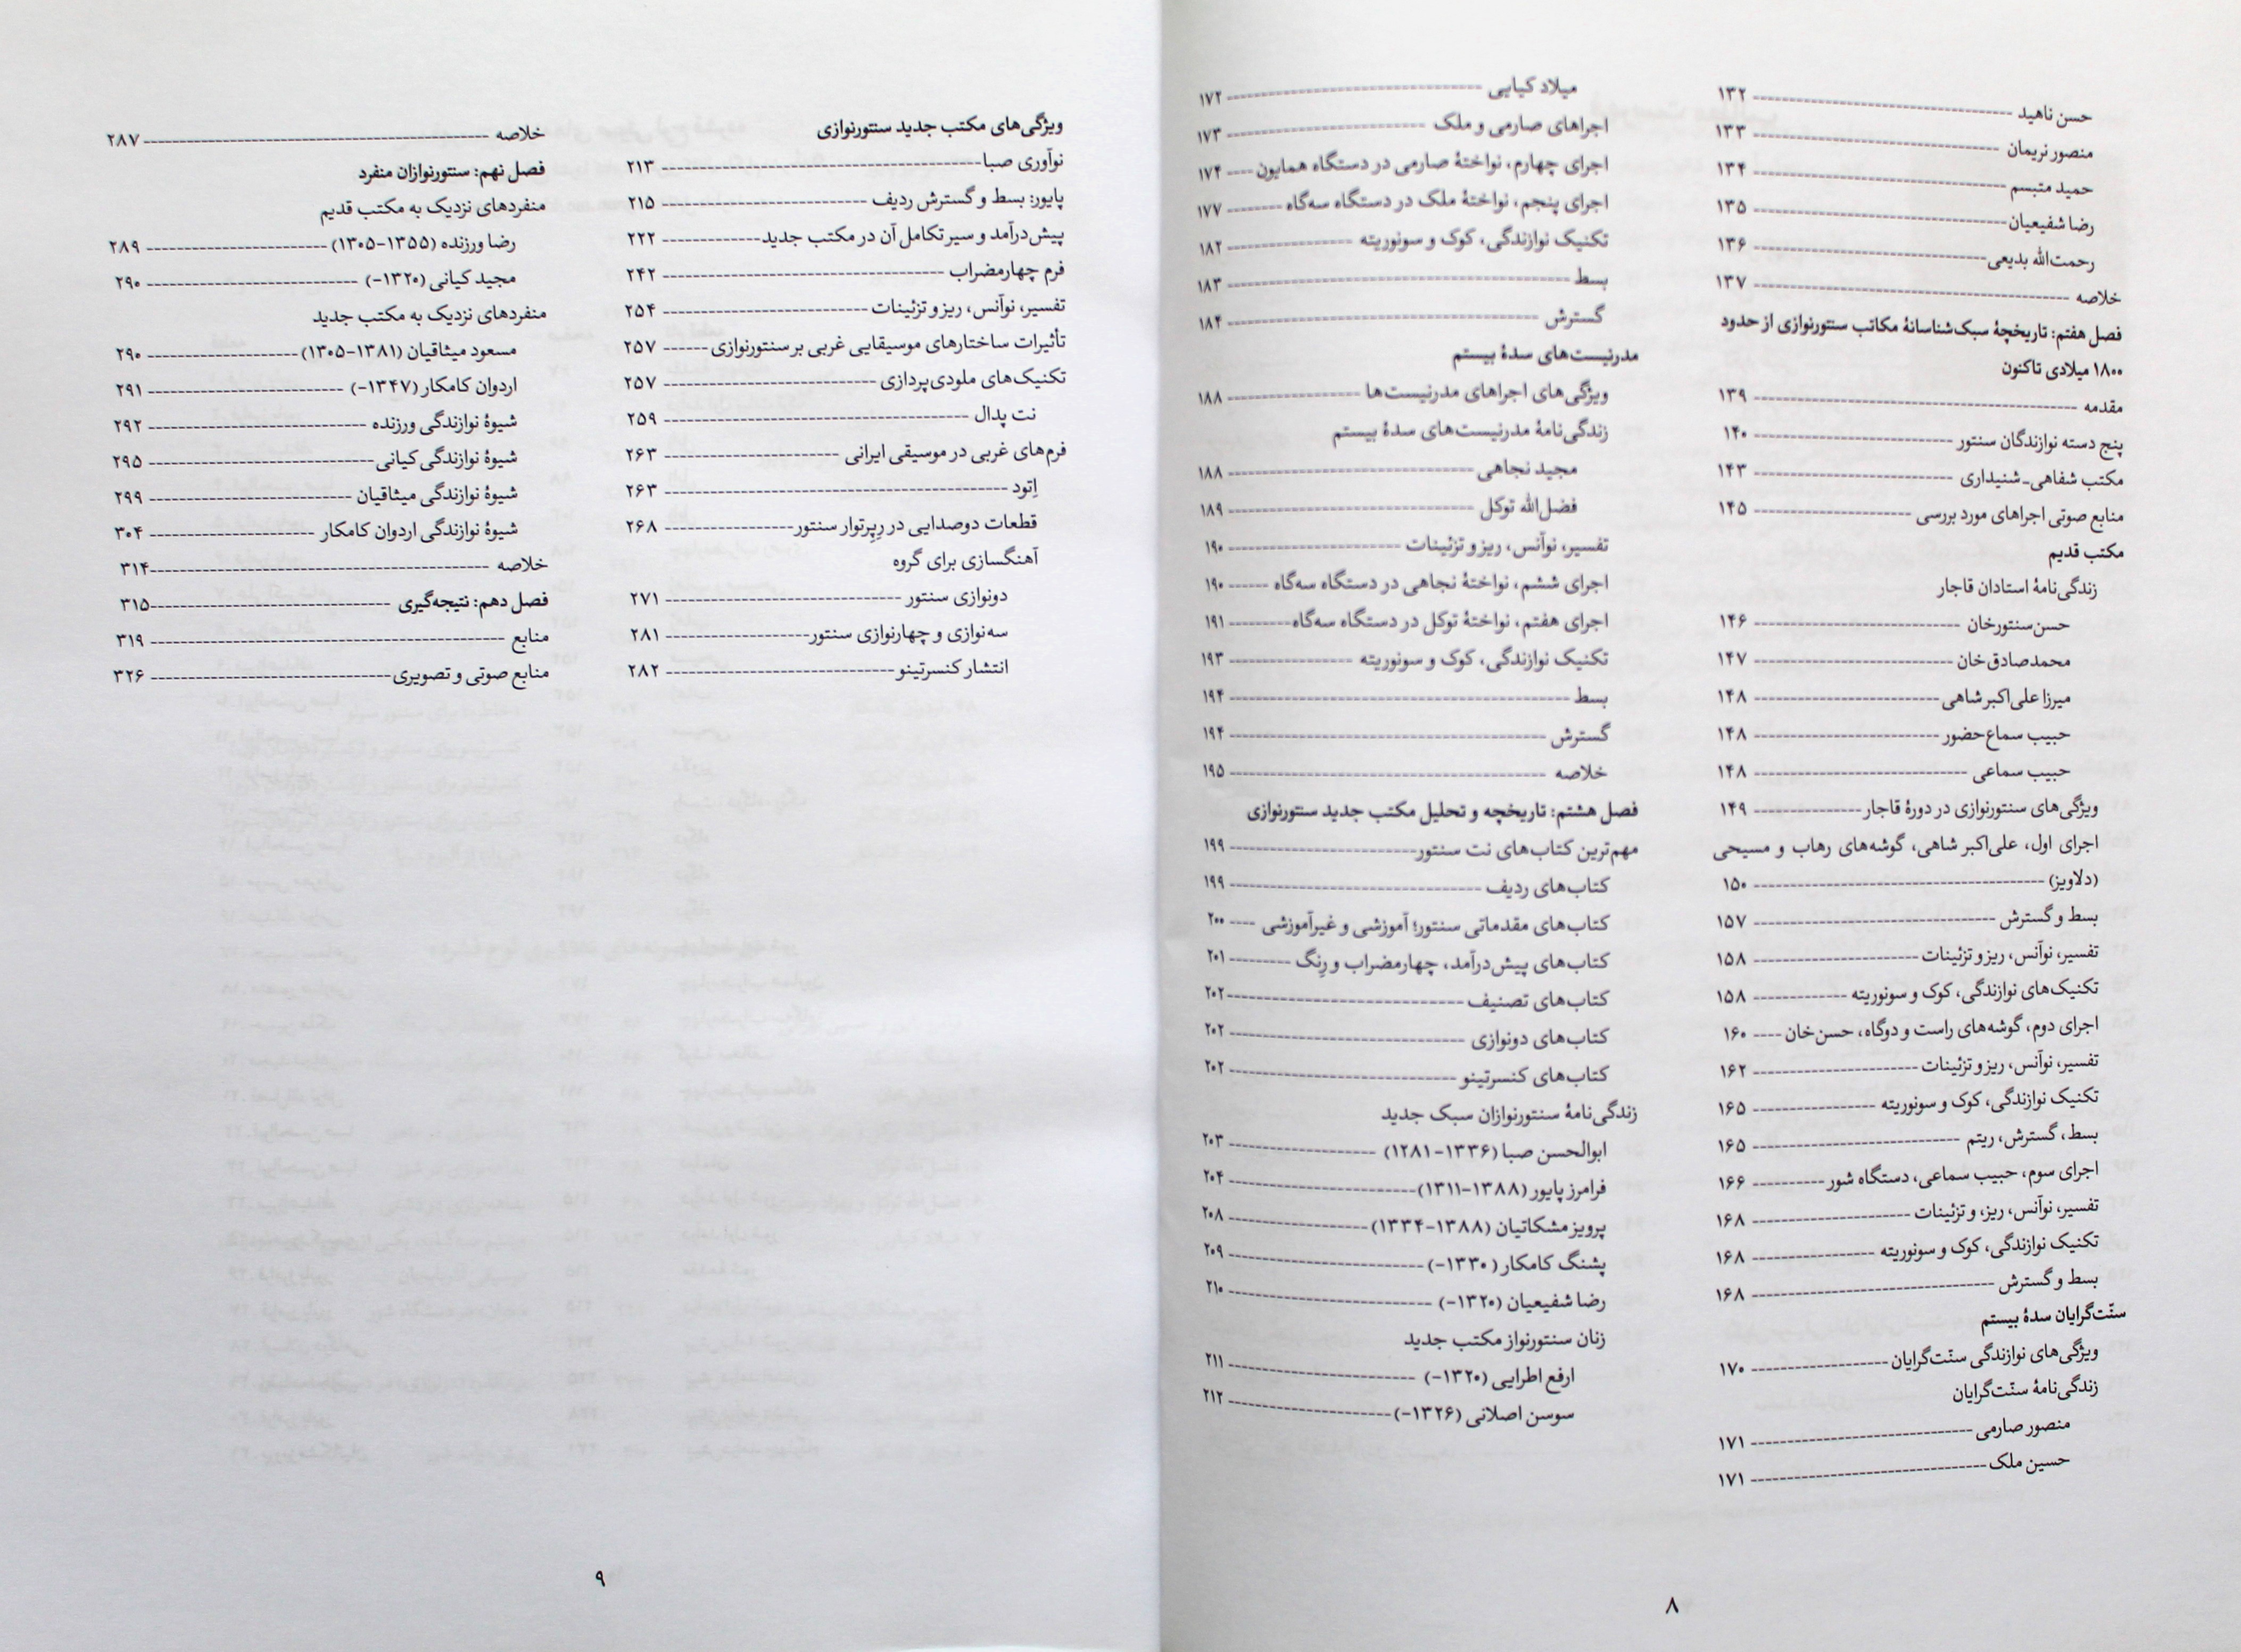 حسن ناهید ---------- ۱۳۲
منصور نریمان ---------- ۱۳۳
حمید متبسم ---------- ۱۳۴
رضا شفیعیان ---------- ۱۳۵
رحمت‌الله بدیعی ---------- ۱۳۶
خلاصه ---------- ۱۳۷
فصل هفتم: تاریخچهٔ سبک‌شناسانهٔ مکاتب سنتورنوازی از حدود
۱۸۰۰ میلادی تاکنون
مقدمه ---------- ۱۳۹
پنج دسته نوازندگان سنتور ---------- ۱۴۰
مکتب شفاهی-شنیداری ---------- ۱۴۳
منابع صوتی اجراهای مورد بررسی ---------- ۱۴۵
مکتب قدیم
زندگی‌نامهٔ استادان قاجار
حسن‌سنتورخان ---------- ۱۴۶
محمدصادق‌خان ---------- ۱۴۷
میرزا علی‌اکبر شاهی ---------- ۱۴۸
حبیب سماع‌حضور ---------- ۱۴۸
حبیب سماعی ---------- ۱۴۸
ویژگی‌های سنتورنوازی در دورهٔ قاجار ---------- ۱۴۹
اجرای اول، علی‌اکبر شاهی، گوشه‌های رهاب و مسیحی
(دلاویز) ---------- ۱۵۰
بسط و گسترش ---------- ۱۵۷
تفسیر، نوآنس، ریز و تزئینات ---------- ۱۵۸
تکنیک‌های نوازندگی، کوک و سونوریته ---------- ۱۵۸
اجرای دوم، گوشه‌های راست و دوگاه، حسن‌خان ---- ۱۶۰
تفسیر، نوآنس، ریز و تزئینات ---------- ۱۶۲
تکنیک نوازندگی، کوک و سونوریته ---------- ۱۶۵
بسط، گسترش، ریتم ---------- ۱۶۵
اجرای سوم، حبیب سماعی، دستگاه شور ---------- ۱۶۶
تفسیر، نوآنس، ریز، و تزئینات ---------- ۱۶۸
تکنیک نوازندگی، کوک و سونوریته ---------- ۱۶۸
بسط و گسترش ---------- ۱۶۸
سنّت‌گرایان سدهٔ بیستم
ویژگی‌های نوازندگی سنّت‌گرایان ---------- ۱۷۰
زندگی‌نامهٔ سنّت‌گرایان
منصور صارمی ---------- ۱۷۱
حسین ملک ---------- ۱۷۱
میلاد کیایی ---------- ۱۷۲
اجراهای صارمی و ملک ---------- ۱۷۳
اجرای چهارم، نواختهٔ صارمی در دستگاه همایون ---- ۱۷۴
اجرای پنجم، نواختهٔ ملک در دستگاه سه‌گاه ---------- ۱۷۷
تکنیک نوازندگی، کوک و سونوریته ---------- ۱۸۲
بسط ---------- ۱۸۳
گسترش ---------- ۱۸۴
مدرنیست‌های سدهٔ بیستم
ویژگی‌های اجراهای مدرنیست‌ها ---------- ۱۸۸
زندگی‌نامهٔ مدرنیست‌های سدهٔ بیستم
مجید نجاهی ---------- ۱۸۸
فضل‌الله توکل ---------- ۱۸۹
تفسیر، نوآنس، ریز و تزئینات ---------- ۱۹۰
اجرای ششم، نواختهٔ نجاهی در دستگاه سه‌گاه ------ ۱۹۰
اجرای هفتم، نواختهٔ توکل در دستگاه سه‌گاه ---------- ۱۹۱
تکنیک نوازندگی، کوک و سونوریته ---------- ۱۹۳
بسط ---------- ۱۹۴
گسترش ---------- ۱۹۴
خلاصه ---------- ۱۹۵
فصل هشتم: تاریخچه و تحلیل مکتب جدید سنتورنوازی
مهم‌ترین کتاب‌های نت سنتور ---------- ۱۹۹
کتاب‌های ردیف ---------- ۱۹۹
کتاب‌های مقدماتی سنتور؛ آموزشی و غیرآموزشی ---- ۲۰۰
کتاب‌های پیش‌درآمد، چهارمضراب و رِنگ ---------- ۲۰۱
کتاب‌های تصنیف ---------- ۲۰۲
کتاب‌های دونوازی ---------- ۲۰۲
کتاب‌های کنسرتینو ---------- ۲۰۲
زندگی‌نامهٔ سنتورنوازان سبک جدید
ابوالحسن صبا (۱۳۳۶-۱۲۸۱) ---------- ۲۰۳
فرامرز پایور (۱۳۸۸-۱۳۱۱) ---------- ۲۰۴
پرویز مشکاتیان (۱۳۸۸-۱۳۳۴) ---------- ۲۰۸
پشنگ کامکار (۱۳۳۰-) ---------- ۲۰۹
رضا شفیعیان (۱۳۲۰-) ---------- ۲۱۰
زنان سنتورنواز مکتب جدید
ارفع اطرایی (۱۳۲۰-) ---------- ۲۱۱
سوسن اصلانی (۱۳۲۶-) ---------- ۲۱۲
۸
ویژگی‌های مکتب جدید سنتورنوازی
نوآوری صبا ---------- ۲۱۳
پایور: بسط و گسترش ردیف ---------- ۲۱۵
پیش‌درآمد و سیر تکامل آن در مکتب جدید ---------- ۲۲۲
فرم چهارمضراب ---------- ۲۴۲
تفسیر، نوآنس، ریز و تزئینات ---------- ۲۵۴
تأثیرات ساختارهای موسیقایی غربی بر سنتورنوازی ------ ۲۵۷
تکنیک‌های ملودی‌پردازی ---------- ۲۵۷
نت پدال ---------- ۲۵۹
فرم‌های غربی در موسیقی ایرانی ---------- ۲۶۳
اِتود ---------- ۲۶۳
قطعات دوصدایی در رِپِرتوار سنتور ---------- ۲۶۸
آهنگسازی برای گروه
دونوازی سنتور ---------- ۲۷۱
سه‌نوازی و چهارنوازی سنتور ---------- ۲۸۱
انتشار کنسرتینو ---------- ۲۸۲
خلاصه ---------- ۲۸۷
فصل نهم: سنتورنوازان منفرد
منفردهای نزدیک به مکتب قدیم
رضا ورزنده (۱۳۵۵-۱۳۰۵) ---------- ۲۸۹
مجید کیانی (۱۳۲۰-) ---------- ۲۹۰
منفردهای نزدیک به مکتب جدید
مسعود میثاقیان (۱۳۸۱-۱۳۰۵) ---------- ۲۹۰
اردوان کامکار (۱۳۴۷-) ---------- ۲۹۱
شیوهٔ نوازندگی ورزنده ---------- ۲۹۲
شیوهٔ نوازندگی کیانی ---------- ۲۹۵
شیوهٔ نوازندگی میثاقیان ---------- ۲۹۹
شیوهٔ نوازندگی اردوان کامکار ---------- ۳۰۴
خلاصه ---------- ۳۱۴
فصل دهم: نتیجه‌گیری ---------- ۳۱۵
منابع ---------- ۳۱۹
منابع صوتی و تصویری ---------- ۳۲۶
۹